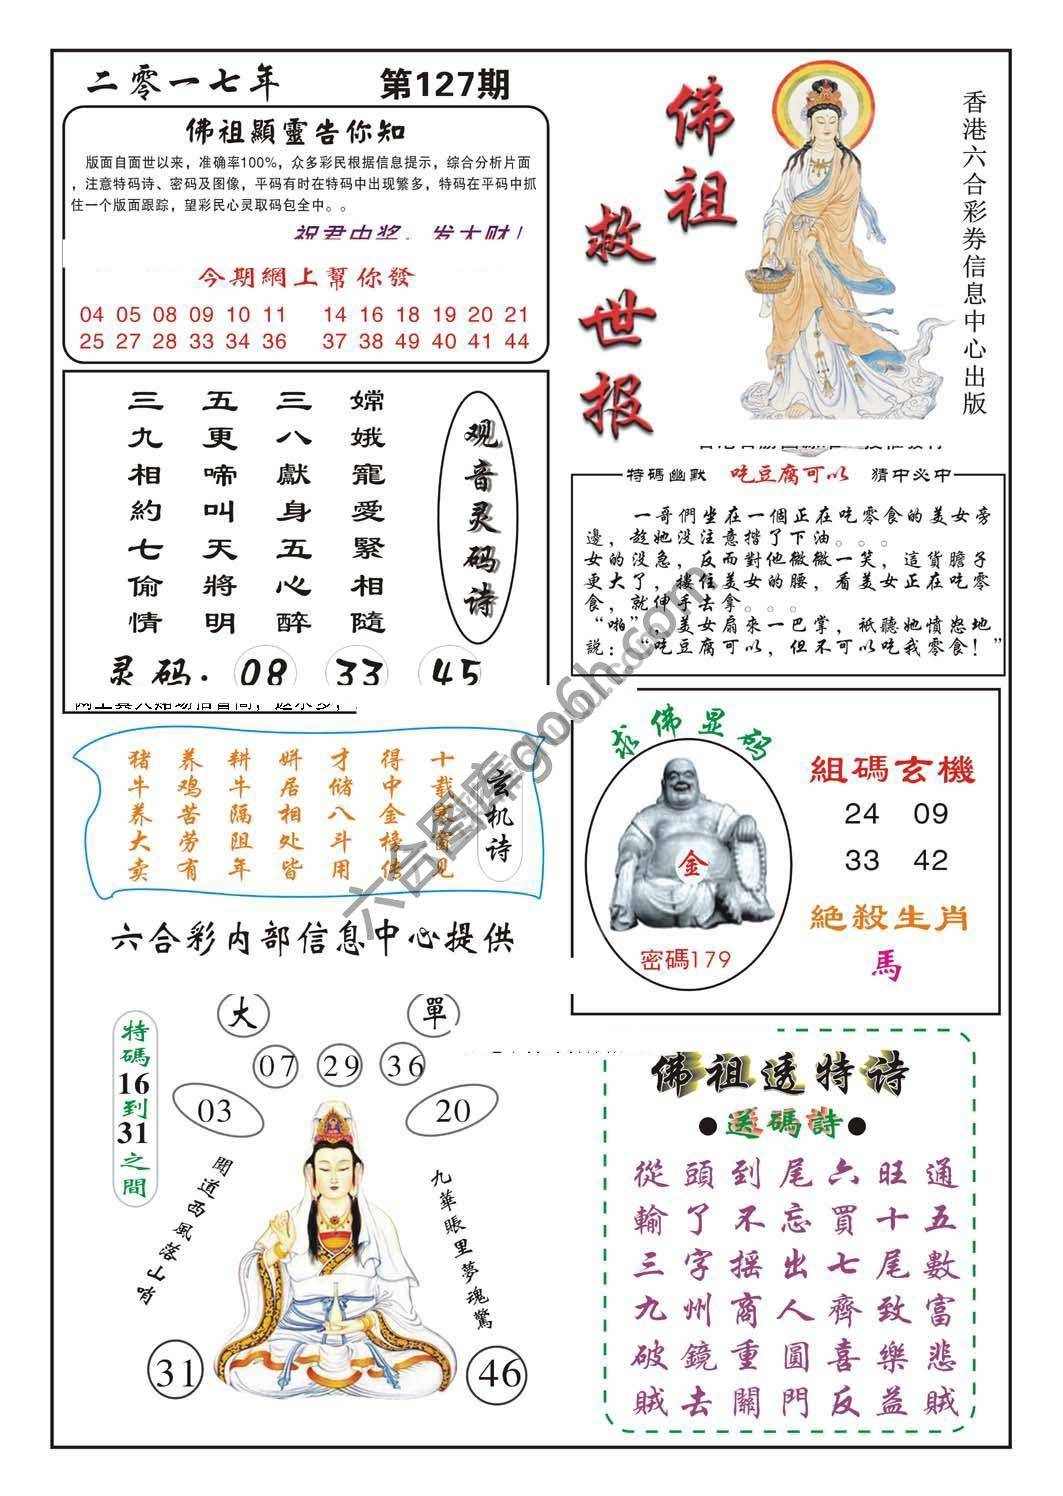 二零一七年 第127期
佛祖顯靈告你知
版面自面世以来，准确率100%，众多彩民根据信息提示，综合分析片面
，注意特码诗、密码及图像，平码有时在特码中出现繁多，特码在平码中抓
住一个版面跟踪，望彩民心灵取码包全中。。
祝君中奖，发大财！
今期網上幫你發
04 05 08 09 10 11 14 16 18 19 20 21
25 27 28 33 34 36 37 38 49 40 41 44
佛祖
救世报
香港六合彩券信息中心出版
观音灵码诗
嫦娥寵愛緊相隨
三八獻身五心醉
五更啼叫天將明
三九相約七偷情
灵码：08 33 45
特碼幽默 吃豆腐可以 猜中必中
一哥們坐在一個正在吃零食的美女旁
邊，趁她没注意揩了下油。。。
女的没急，反而對他微微一笑，這貨膽子
更大了，摟住美女的腰，看美女正在吃零
食，就伸手去拿。。。
“啪”，美女扇來一巴掌，祇聽她憤怒地
説：“吃豆腐可以，但不可以吃我零食！”
玄机诗
十载寒窗见
得中金榜传
才储八斗用
姘居相处皆
耕牛隔阻年
养鸡苦劳有
猪牛养大卖
六合彩内部信息中心提供
求佛显码
金
密碼179
組碼玄機
24 09
33 42
絶殺生肖
馬
大 單
07 29 36
03 20
特碼16到31之間
聞道西風落山哨
九華賬里夢魂驚
31 46
佛祖透特诗
●送碼詩●
從頭到尾六旺通
輸了不忘買十五
三字摇出七尾數
九州商人齊致富
破鏡重圓喜樂悲
賊去關門反益賊
六合图库go6h.com